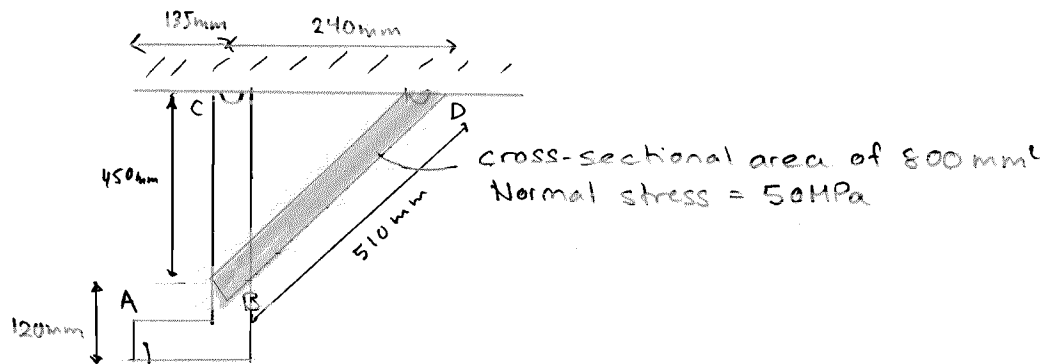 135mm
240mm
C
D
450mm
cross-sectional area of 800 mm²
Normal stress = 50MPa
510mm
A
B
120mm